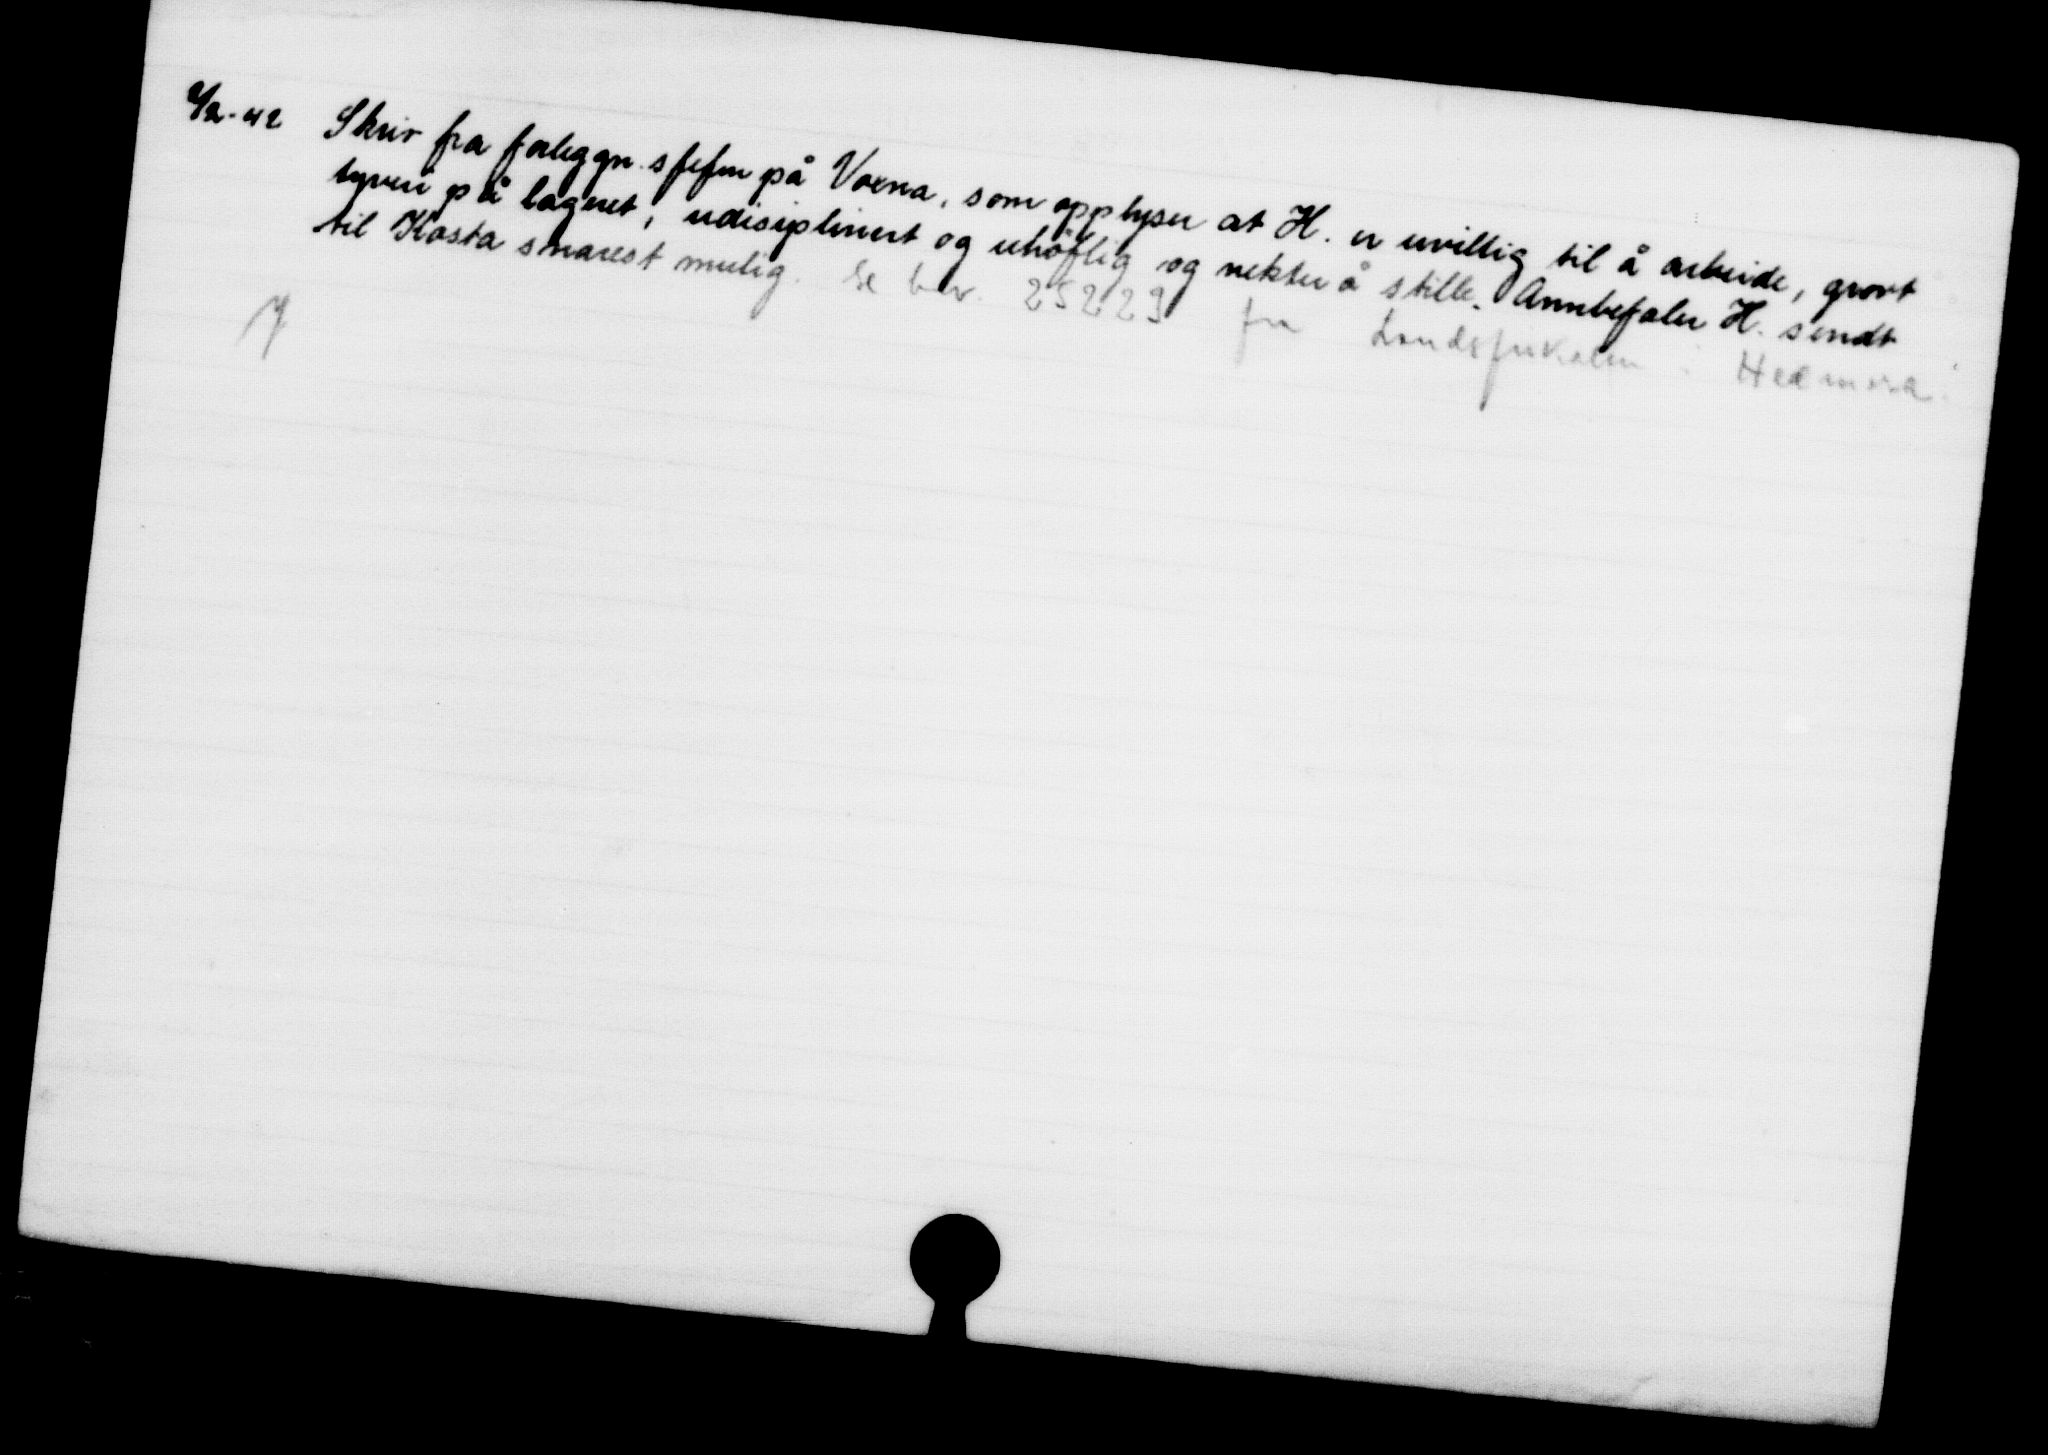 4/2-42 Skriv fra forleggn.sjefen på Voxna, som opplyser at H. er uvillig til å arbeide, grovt
tyveri på lagret, udisiplinert og uhöflig og nekter å stille. Annbefaler H. sendt
til Kosta snarest mulig. Se brev 25229 fra Landsfiskalen i Hedemora.